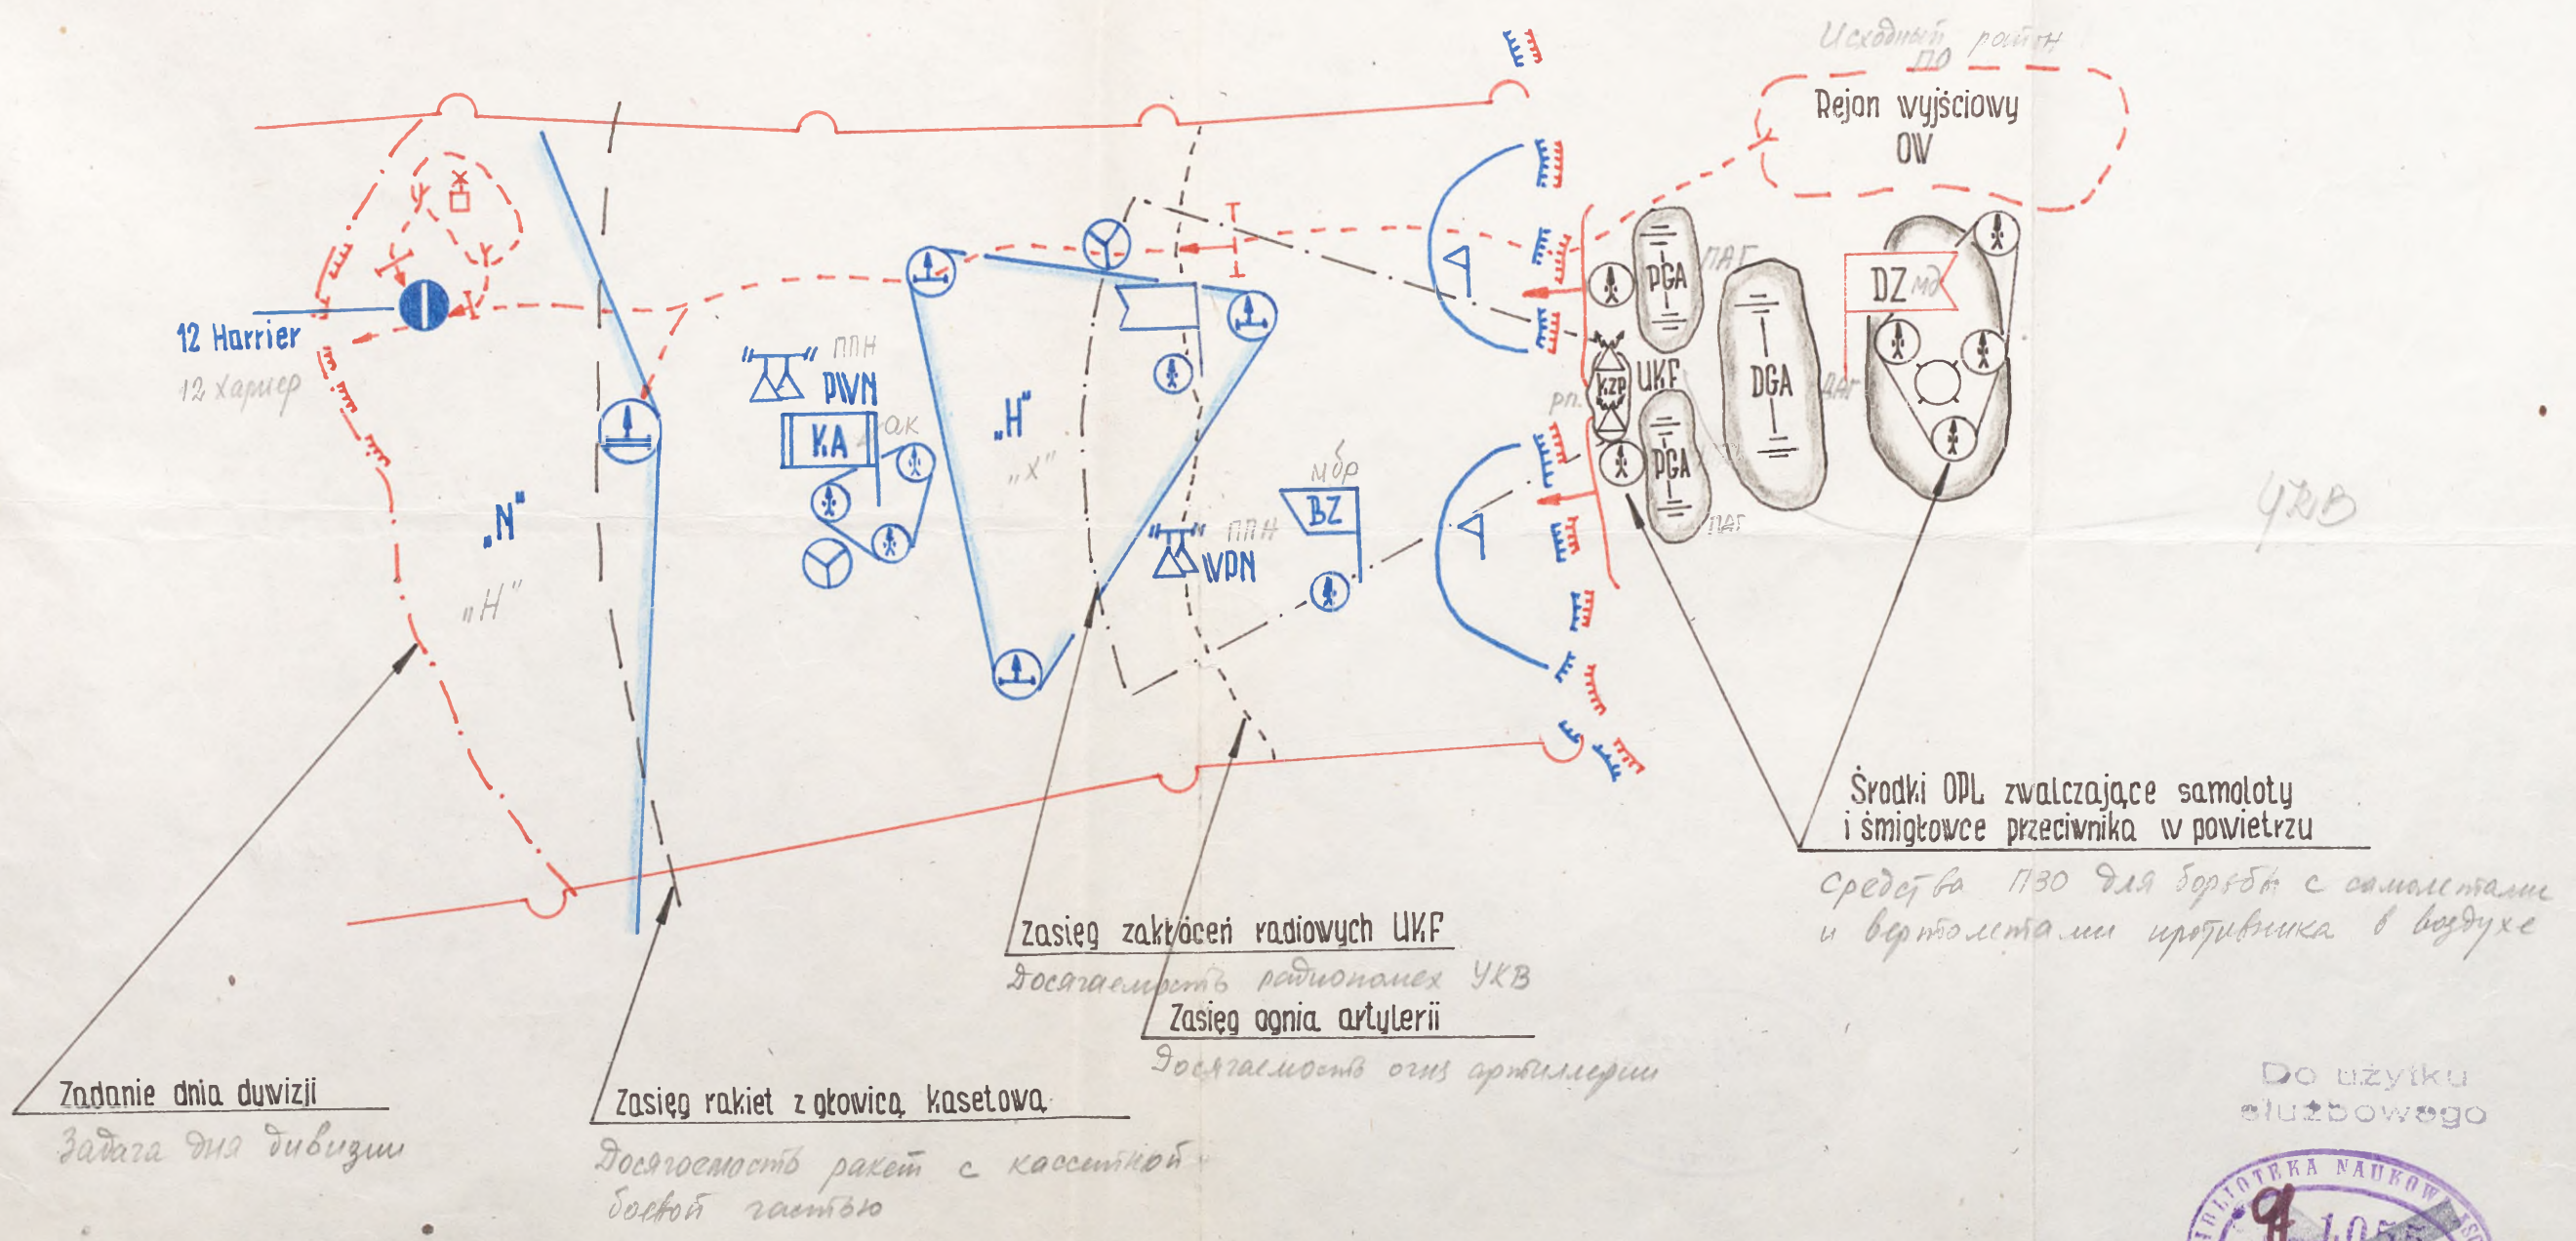 Исходный район
ПО
Rejon wyjściowy
OW
12 Harrier
12 хариер
„N"
„Н"
ППН
PWN
KA
ак
„H"
„х"
мбр
BZ
ППН
WPN
PGA
ПАГ
UKF
KZP
рп.
PGA
ПАГ
DGA
ДАГ
DZ мд
УКВ
Środki OPL zwalczające samoloty
i śmigłowce przeciwnika w powietrzu
Средства ПВО для борьбы с самолетами
и вертолетами противника в воздухе
Zasięg zakłóceń radiowych UKF
Досягаемость радиопомех УКВ
Zasięg ognia artylerii
Досягаемость огня артиллерии
Zadanie dnia dywizji
Задача дня дивизии
Zasięg rakiet z głowicą kasetową
Досягаемость ракет с кассетной
боевой частью
Do użytku
służbowego
BIBLIOTEKA NAUKOW